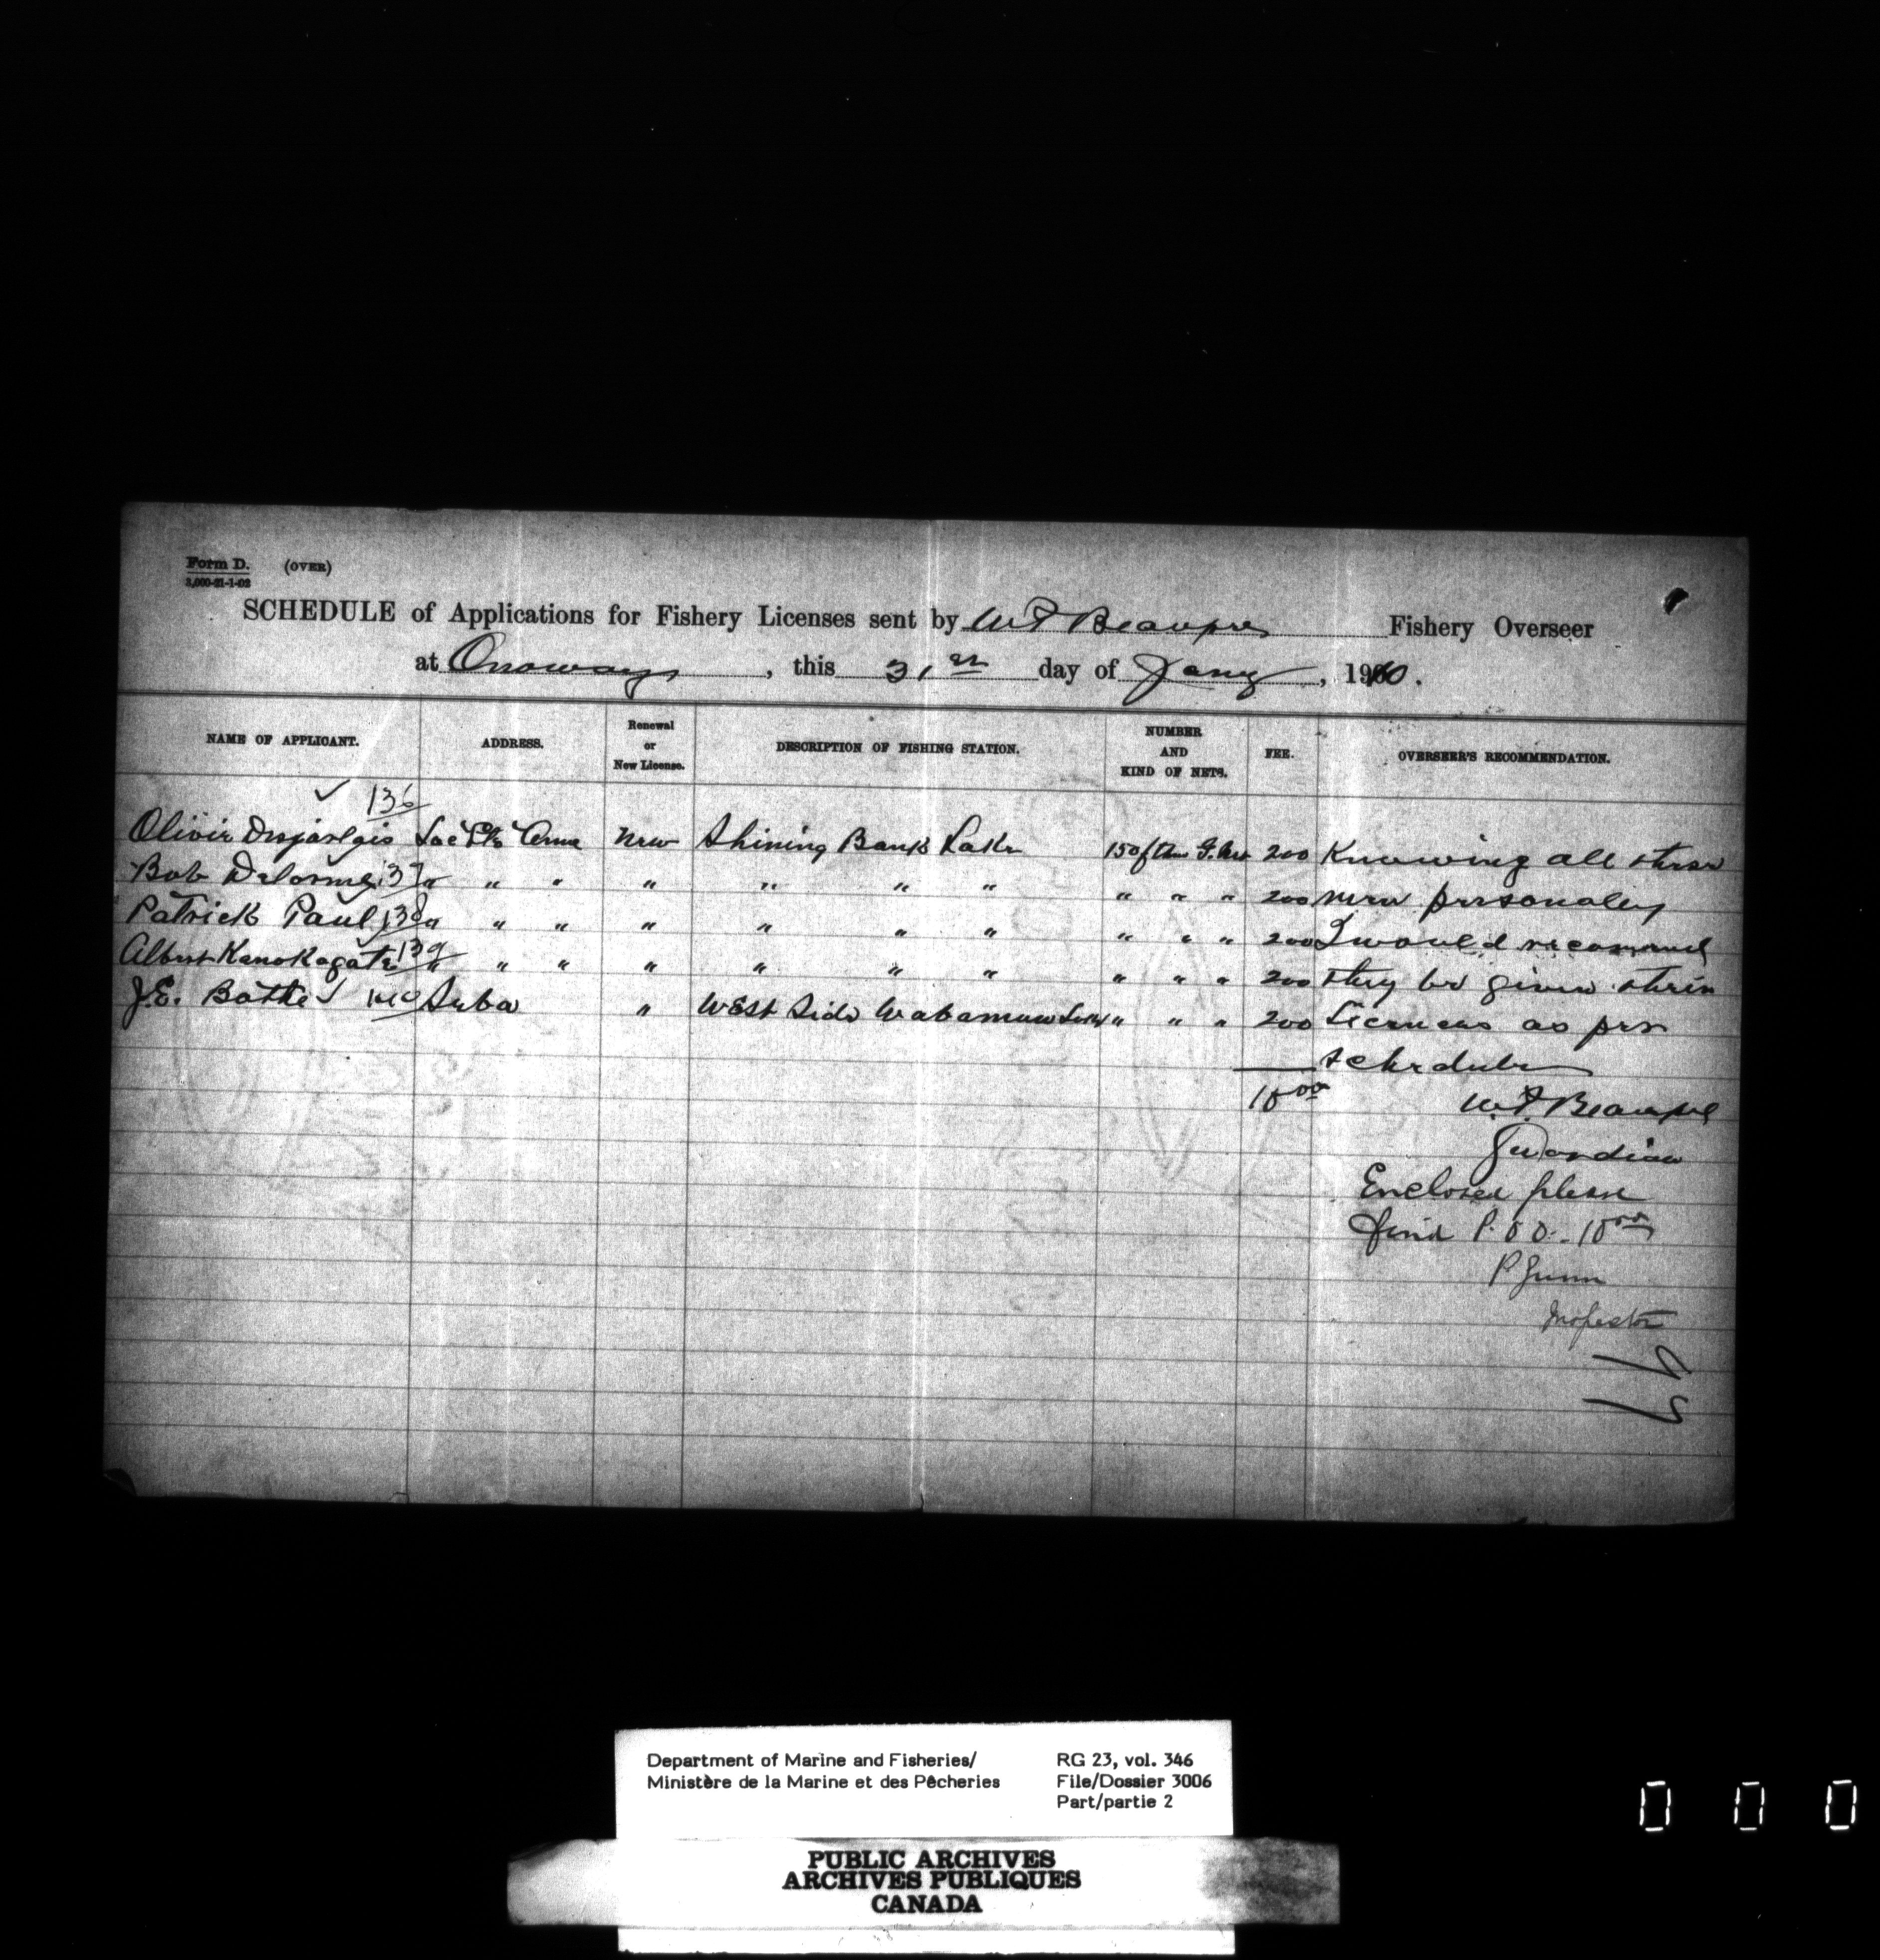 Form D. (OVER)
3,000-21-1-02
SCHEDULE of Applications for Fishery Licenses sent by W F Beaupre Fishery Overseer
at Onoway, this 31st day of Jany, 1910.
NAME OF APPLICANT. ADDRESS. Renewal or New License. DESCRIPTION OF FISHING STATION. NUMBER AND KIND OF NETS. FEE. OVERSEER'S RECOMMENDATION.
✓ 136
Olivir Desjarlais Lac Ste Anne New Shining Bank Lake 150 fthm G. Net 200 Knowing all these
Bob Delorme 137 " " " " " " " " " " 200 men personaley
Patrick Paul 138 " " " " " " " " " " 200 I would recomend
Albert Kanokagate 139 " " " " " " " " " " 200 they be given their
J.E. Bothe ✓ 140 Seba " West Side Wabamun Lake " " " 200 Licenses as per
schedule
10 00 W. F. Beaupre
Guardian
Enclosed please
find P.O.O. 10 00
P Gunn
Inspector
Department of Marine and Fisheries/
Ministère de la Marine et des Pêcheries
RG 23, vol. 346
File/Dossier 3006
Part/partie 2
PUBLIC ARCHIVES
ARCHIVES PUBLIQUES
CANADA
0 0 0